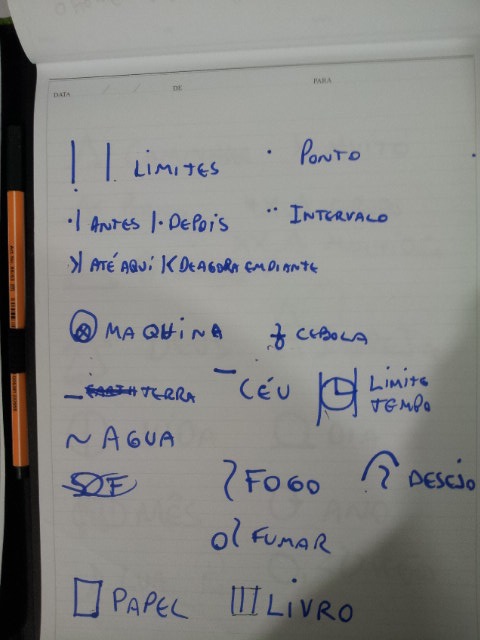 DATA / / DE PARA
| | LIMITES · PONTO
·| ANTES |· DEPOIS ·· INTERVALO
ATÉ AQUI DE AGORA EM DIANTE
MAQUINA CEBOLA
TERRA CÉU LIMITE
TEMPO
~ AGUA
FOGO DESEJO
FUMAR
PAPEL LIVRO